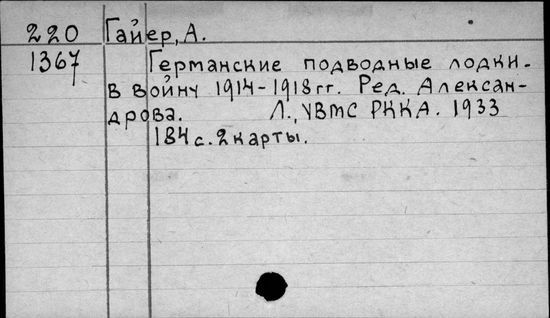 220 Гайер, А.
1367 Германские подводные лодки.
в войну 1914-1918гг. Ред. Алексан-
дрова. Л., УВМС РККА. 1933
184 с. 2 карты.